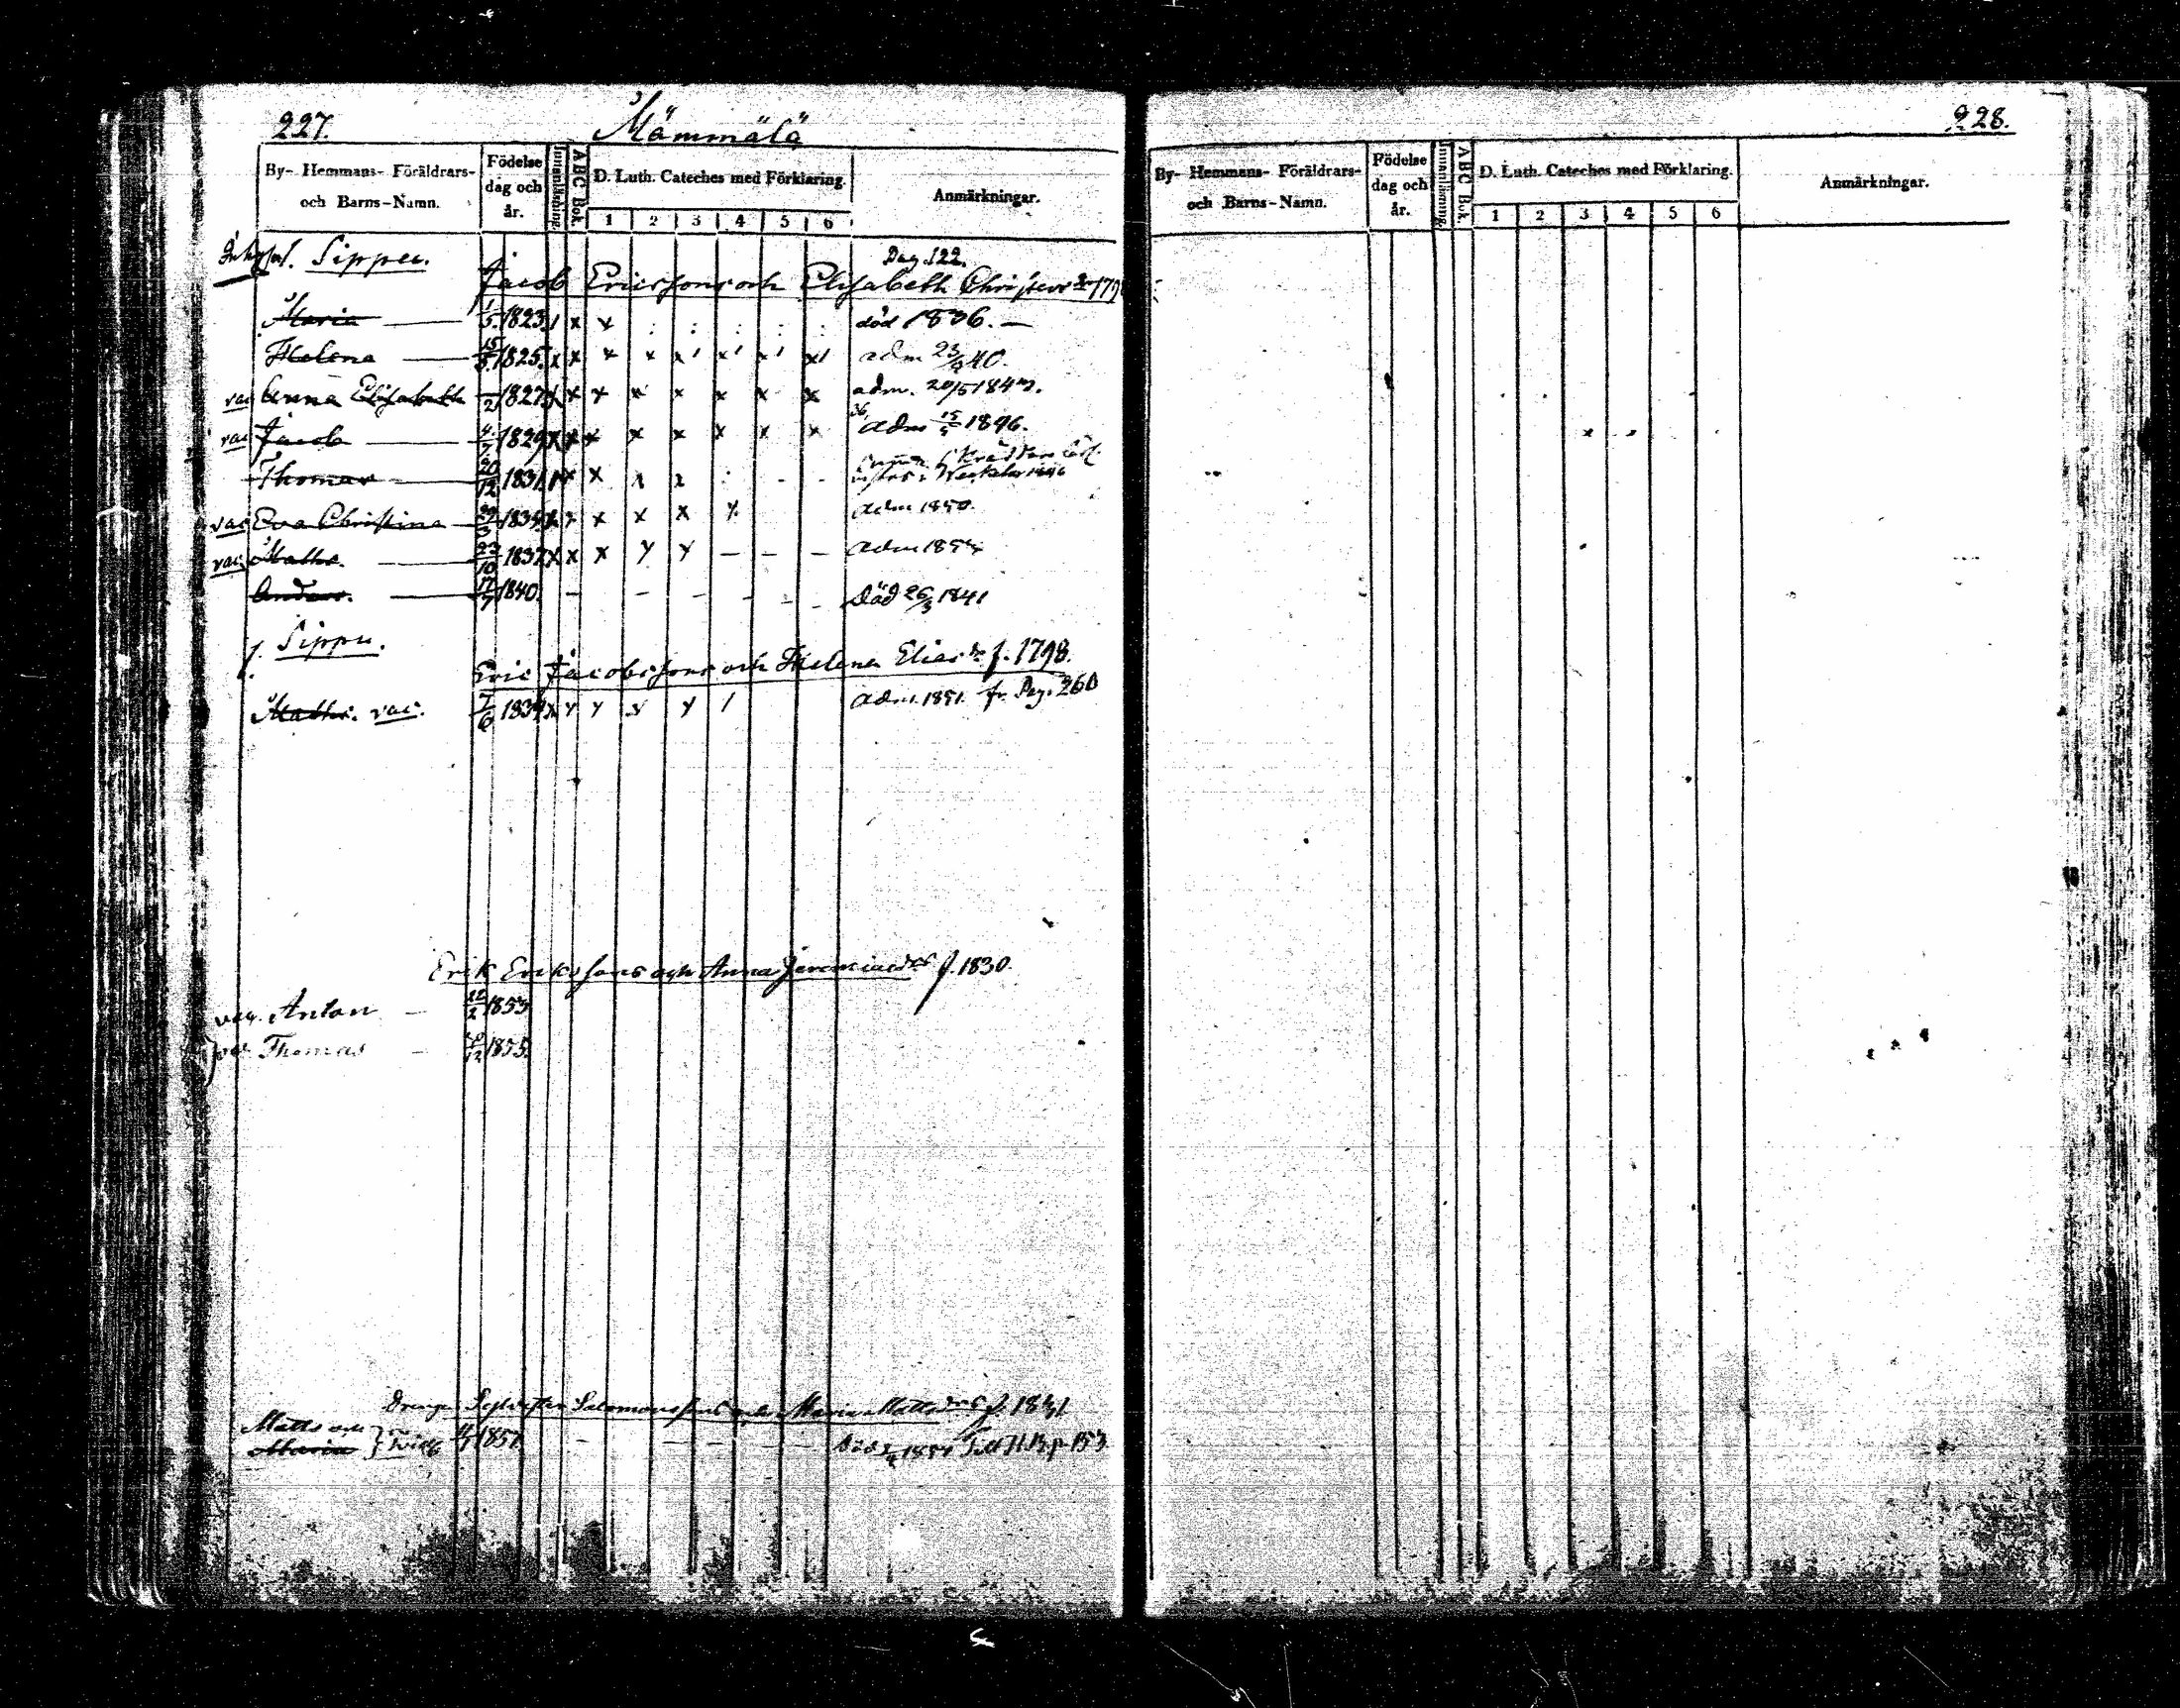 227.
Mämmälä
By- Hemmans- Föräldrars- och Barns-Namn.
Födelse dag och år.
Innanläsning.
ABC Bok.
D. Luth. Cateches med Förklaring.
1 2 3 4 5 6
Anmärkningar.
Sippu.
Pag. 122.
Jacob Ericssons och Elisabeth
Maria 1/5 1823 x x död 1836.
Helena 15/ 1825 x x x x x x x x adm 40.
vac Anna Elisabeth /2 1827 x x x x x x x x adm. 20/5 184
vac Jacob 4/7 1829 x x x x x x x x adm 15/5 1846.
Thomas 20/12 1831 x x x x
vac Eva Christina x x x x x adm 1850.
vac Matts. 23/10 1837 x x x adm
Anders. 17/7 1840. – – – – – – Död 26/3 1841
f. Sippu.
Eric Jacobssons och Helena Elias dr f. 1798.
Matts. vac. 7/6 1834 adm. 1851. fr. Pag. 260
Erik Erikssons och Anna Jeremiædrs f. 1830.
vac. Anton – /2 1853
vac Thomas – /12 1855.
Salomonssons och Maria Matts drs f. 1831
Matts och
Maria } 1857. – – – – – Till H.B. p. 153.
228.
By- Hemmans- Föräldrars- och Barns-Namn.
Födelse dag och år.
Innanläsning.
ABC Bok.
D. Luth. Cateches med Förklaring.
1 2 3 4 5 6
Anmärkningar.